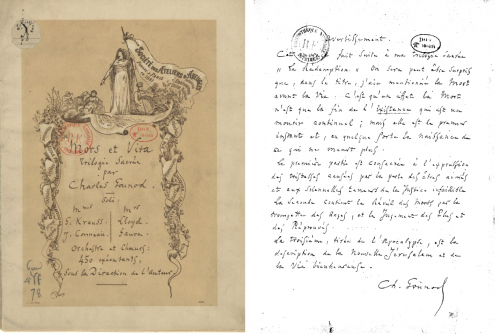 Mors et Vita
Trilogie Sacrée
par
Charles Gounod.
Soli:
Mmes Mrs
G. Krauss. Lloyd.
J. Conneau. Faure.
Orchestre et Chœurs:
450 exécutants.
Sous la Direction de l'auteur.
78
Avertissement.
Cette fait suite à ma trilogie sacrée
"La Rédemption." On sera peut être surpris
que, dans le titre, j'aie mentionné la Mort
avant la Vie. C'est qu'en effet la Mort
n'est que la fin de l'existence qui est un
mourir continuel; mais elle est le premier
instant et, en quelque sorte la naissance de
ce qui ne meurt plus.
La première partie est consacrée à l'expression
des tristesses causées par la perte des êtres aimés
et aux solennelles terreurs de la Justice infaillible
La Seconde contient le Réveil des Morts par les
trompettes des Anges, et le Jugement des Élus et
des Réprouvés.
La troisième, tirée de l'Apocalypse, est la
description de la Nouvelle Jérusalem et de
la Vie bienheureuse.
Ch. Gounod